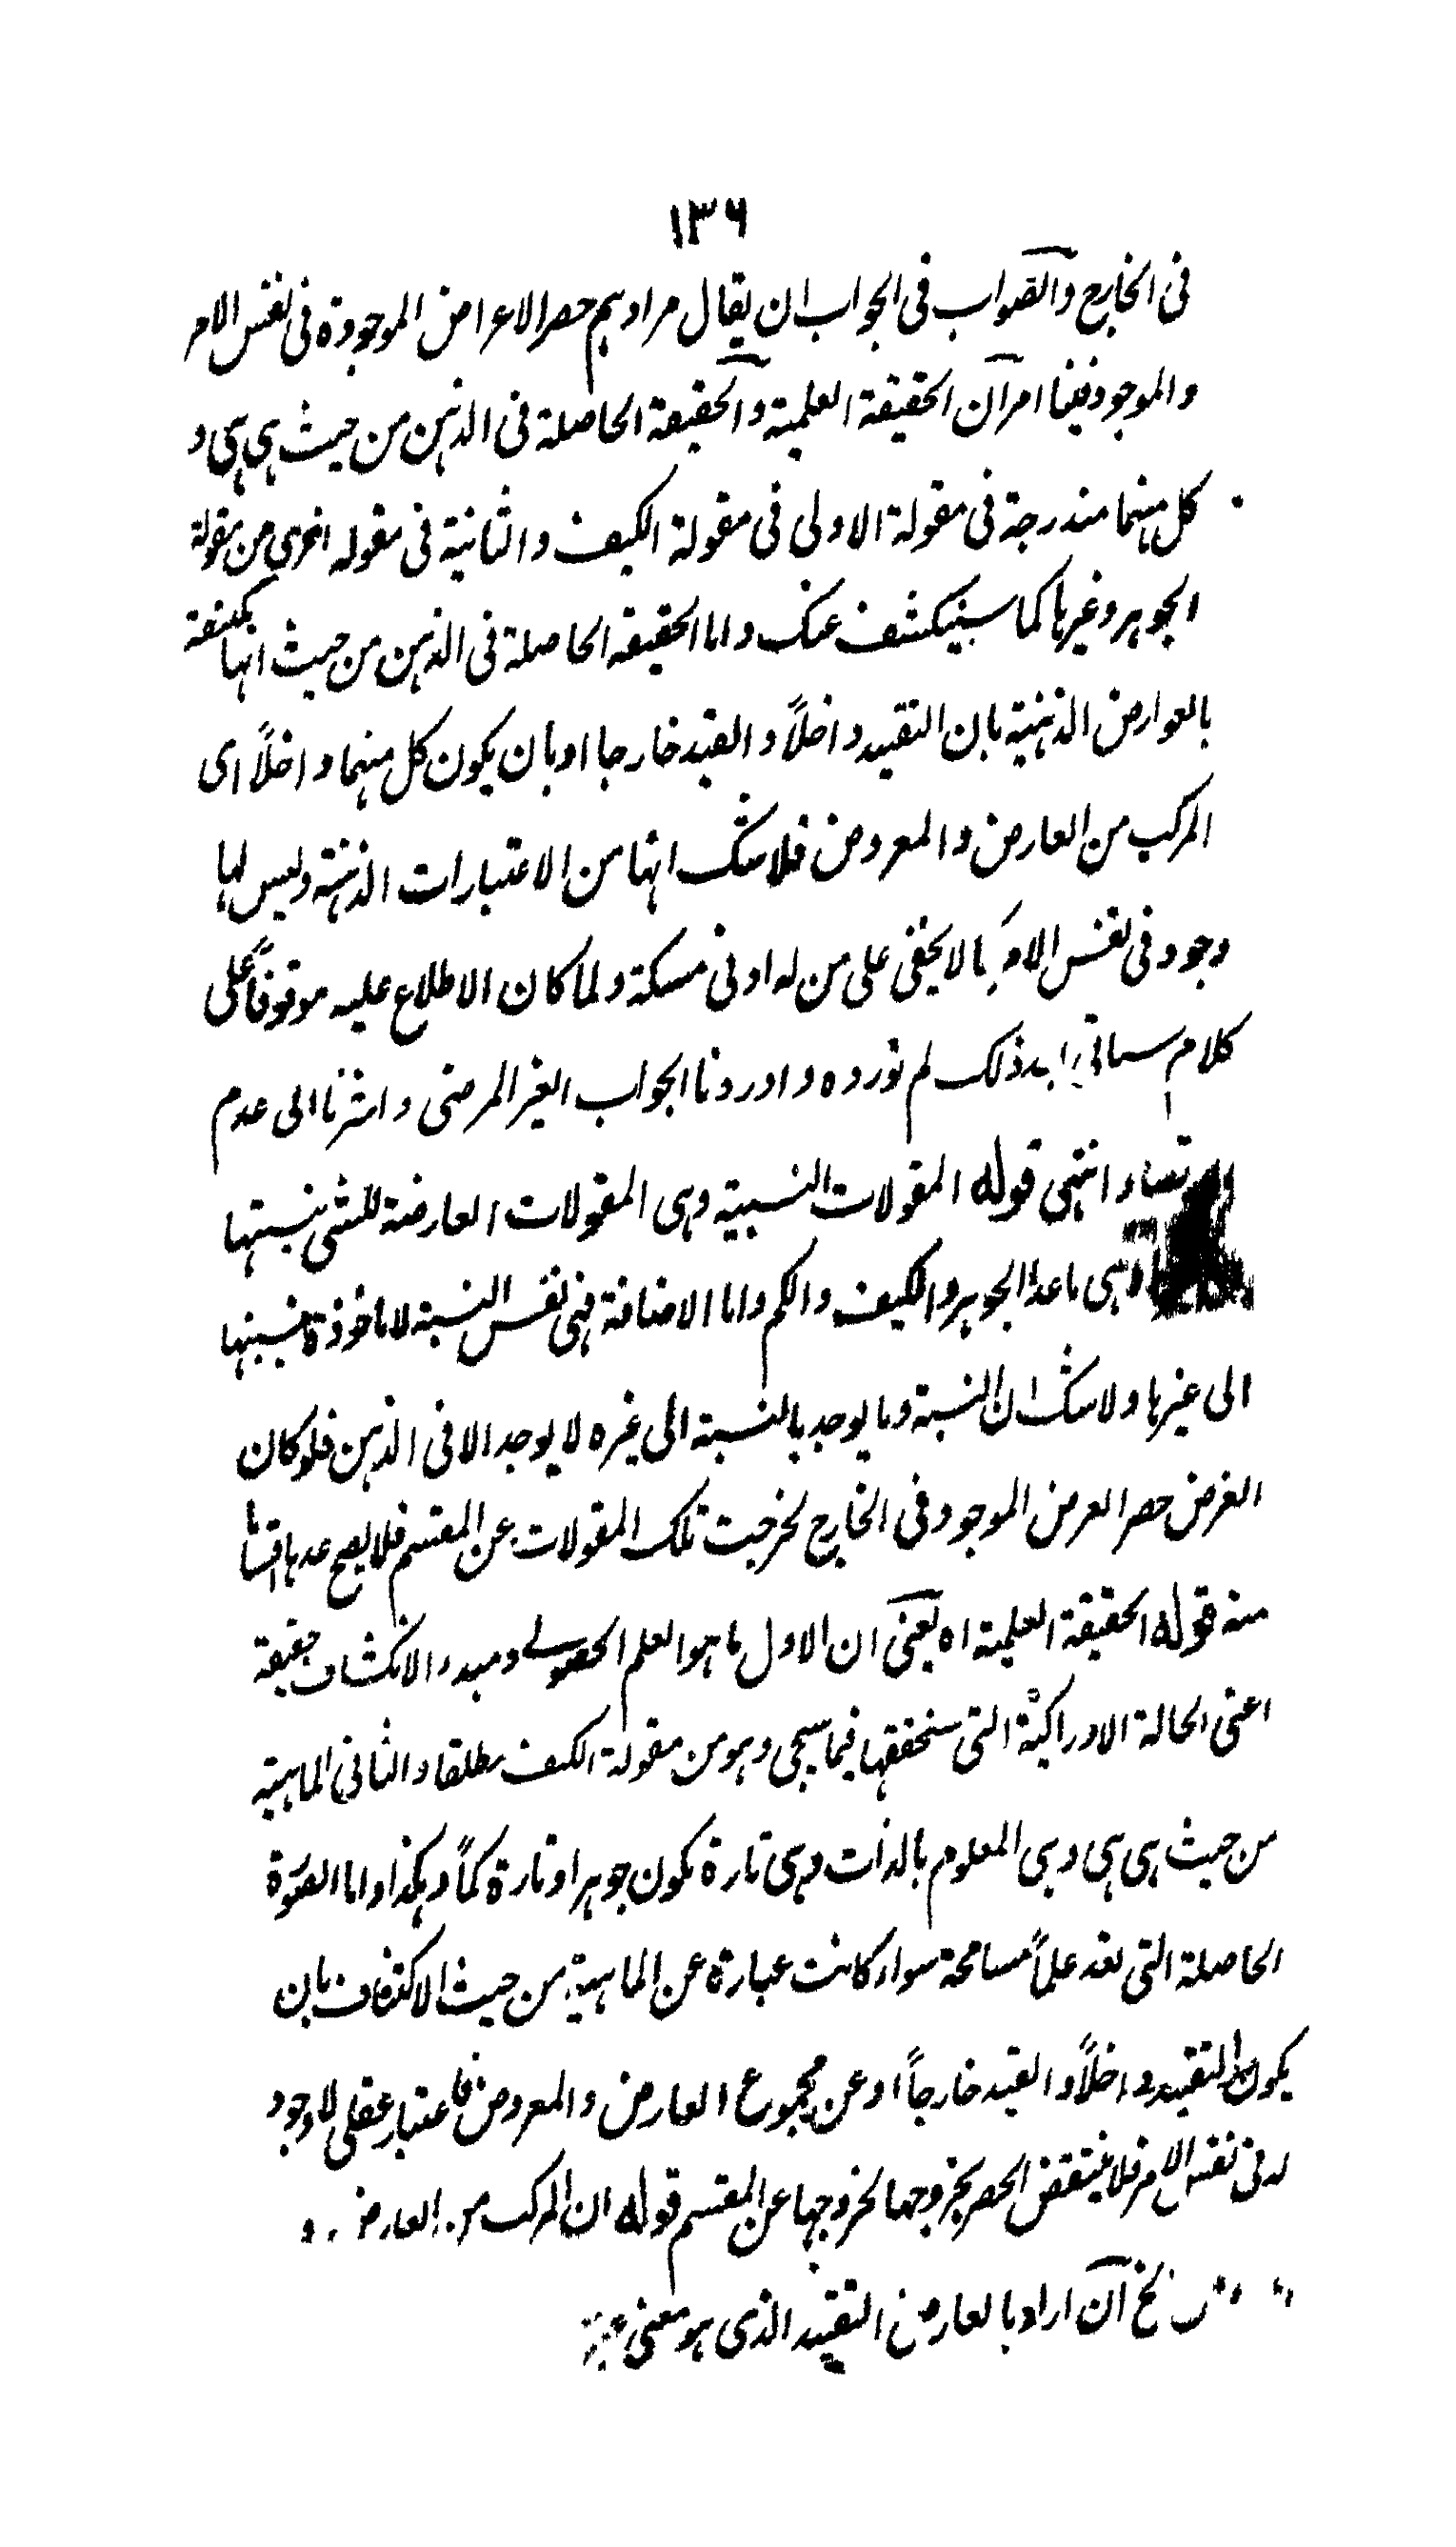 ١٣٦
فى الخارج والصواب فى الجواب ان يقال مرادهم حصر الاعراض الموجودة فى نفس الامر
والموجود فيها امران الحقيقة العلمية والحقيقة الحاصلة فى الذهن من حيث هى هى و
كل منهما مندرجة فى مقولة الاولى فى مقولة الكيف والثانية فى مقوله اخرى من مقولة
الجوهر وغيرها كما سينكشف عنك واما الحقيقه الحاصلة فى الذهن من حيث انها مكتنفة
بالعوارض الذهنية بان التقييد داخلاً والقيد خارجا او بان يكون كل منهما داخلاً اى
المركب من العارض والمعروض فلا شك انها من الاعتبارات الذهنية وليس لها
وجود فى نفس الامر كما لا يخفى على من له ادنى مسكة ولما كان الاطلاع عليه موقوفاً على
كلام سياتى بعد ذلك لم نورده واوردنا الجواب الغير المرضى واشرنا الى عدم
انتهى قوله المقولات النسبية وهى المقولات العارضة للشى بنسبتها
وهى ما عدا الجوهر والكيف والكم واما الاضافة فهى نفس النسبة لا ماخوذة بنسبتها
الى غيرها ولا شك ان النسبة وما يوجد بالنسبة الى غيره لا يوجد الا فى الذهن فلو كان
الغرض حصر العرض الموجود فى الخارج لخرجت تلك المقولات عن المقسم فلا يصح عدها اقساما
منه قوله الحقيقة العلمية اه يعنى ان الاول ما هو العلم الحصولى ومبدء الانكشاف حقيقة
اعنى الحالة الادراكية التى سنحققها فيما سيجى وهو من مقولة الكيف مطلقا والثانى الماهية
من حيث هى هى وهى المعلوم بالذات وهى تارة تكون جوهرا وتارة كماً وهكذا واما الصورة
الحاصلة التى تعد علماً مسامحة سواء كانت عبارة عن الماهية من حيث الاكتناف بان
يكون التقييد داخلاً والقيد خارجاً او عن مجموع العارض والمعروض فاعتبار عقلى لا وجود
له فى نفس الامر فلا ينتقض الحصر بخروجهما لخروجها عن المقسم قوله ان المركب من العارض و
الخ ان اراد بالعارض التقييد الذى هو معنى